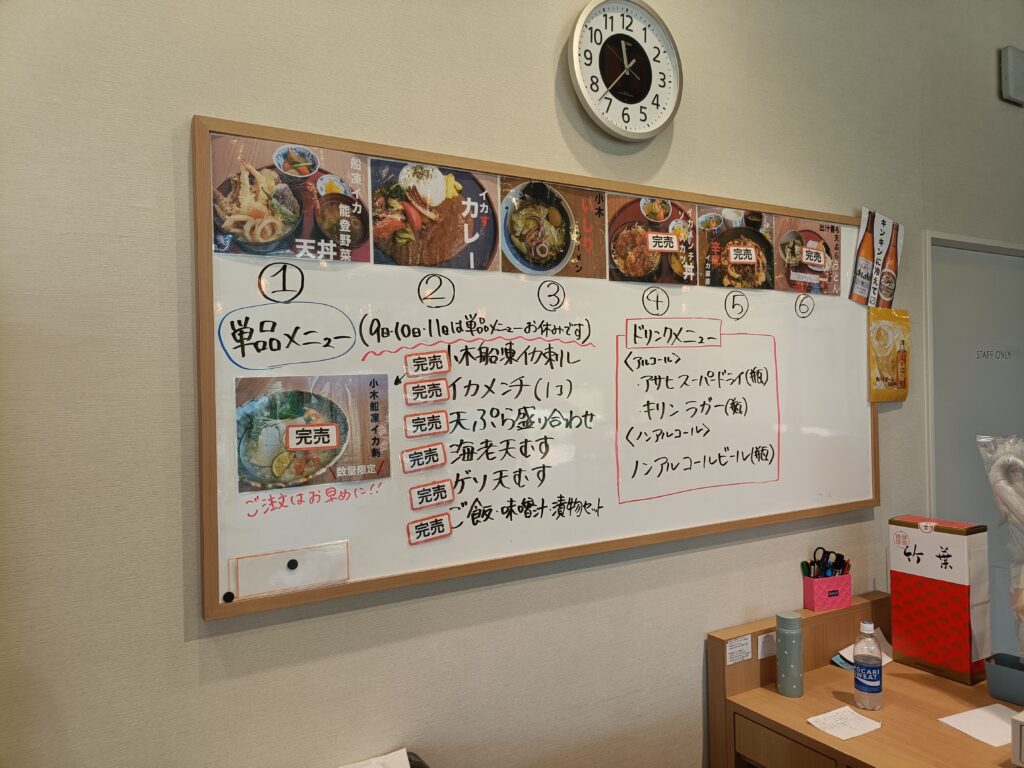 船凍イカ
能登野菜
天丼
イカ
カレー
小木
いしり
イカメンチ
丼
完売
完売
完売
① ② ③ ④ ⑤ ⑥
単品メニュー (9日・10日・11日は単品メニューお休みです)
完売 小木船凍イカ刺し
完売 イカメンチ(1コ)
完売 天ぷら盛り合わせ
完売 海老天むす
完売 ゲソ天むす
完売 ご飯・味噌汁・漬物セット
小木船凍イカ刺
完売
数量限定
ご注文はお早めに!!
ドリンクメニュー
<アルコール>
・アサヒスーパードライ(瓶)
・キリンラガー(瓶)
<ノンアルコール>
ノンアルコールビール(瓶)
キンキンに冷えてる
Asahi
12 1 2 3 4 5 6 7 8 9 10 11
STAFF ONLY
竹葉
POCARI
SWEAT